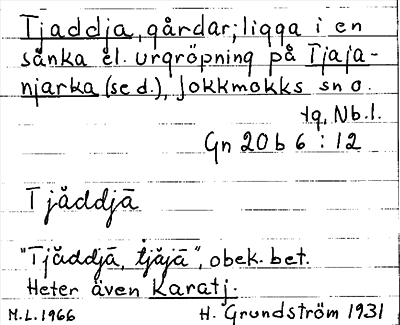 Tjaddja, gårdar; ligga i en
sänka el. urgröpning på Tjaja-
njarka (se d.), Jokkmokks sn o.
tg, Nb.l.
Gn 20 b 6 : 12
Tjåddjā
"Tjåddjā, tjåjā", obek. bet.
Heter även Karatj.
M.L.1966 H. Grundström 1931